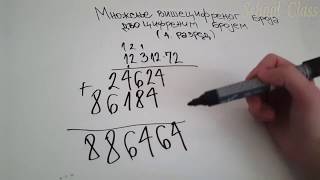 School Class
Множење вишецифреног броја
двоцифреним бројем
(1 разред)
1 2 1
12312·72
+ 24624
86184
886464